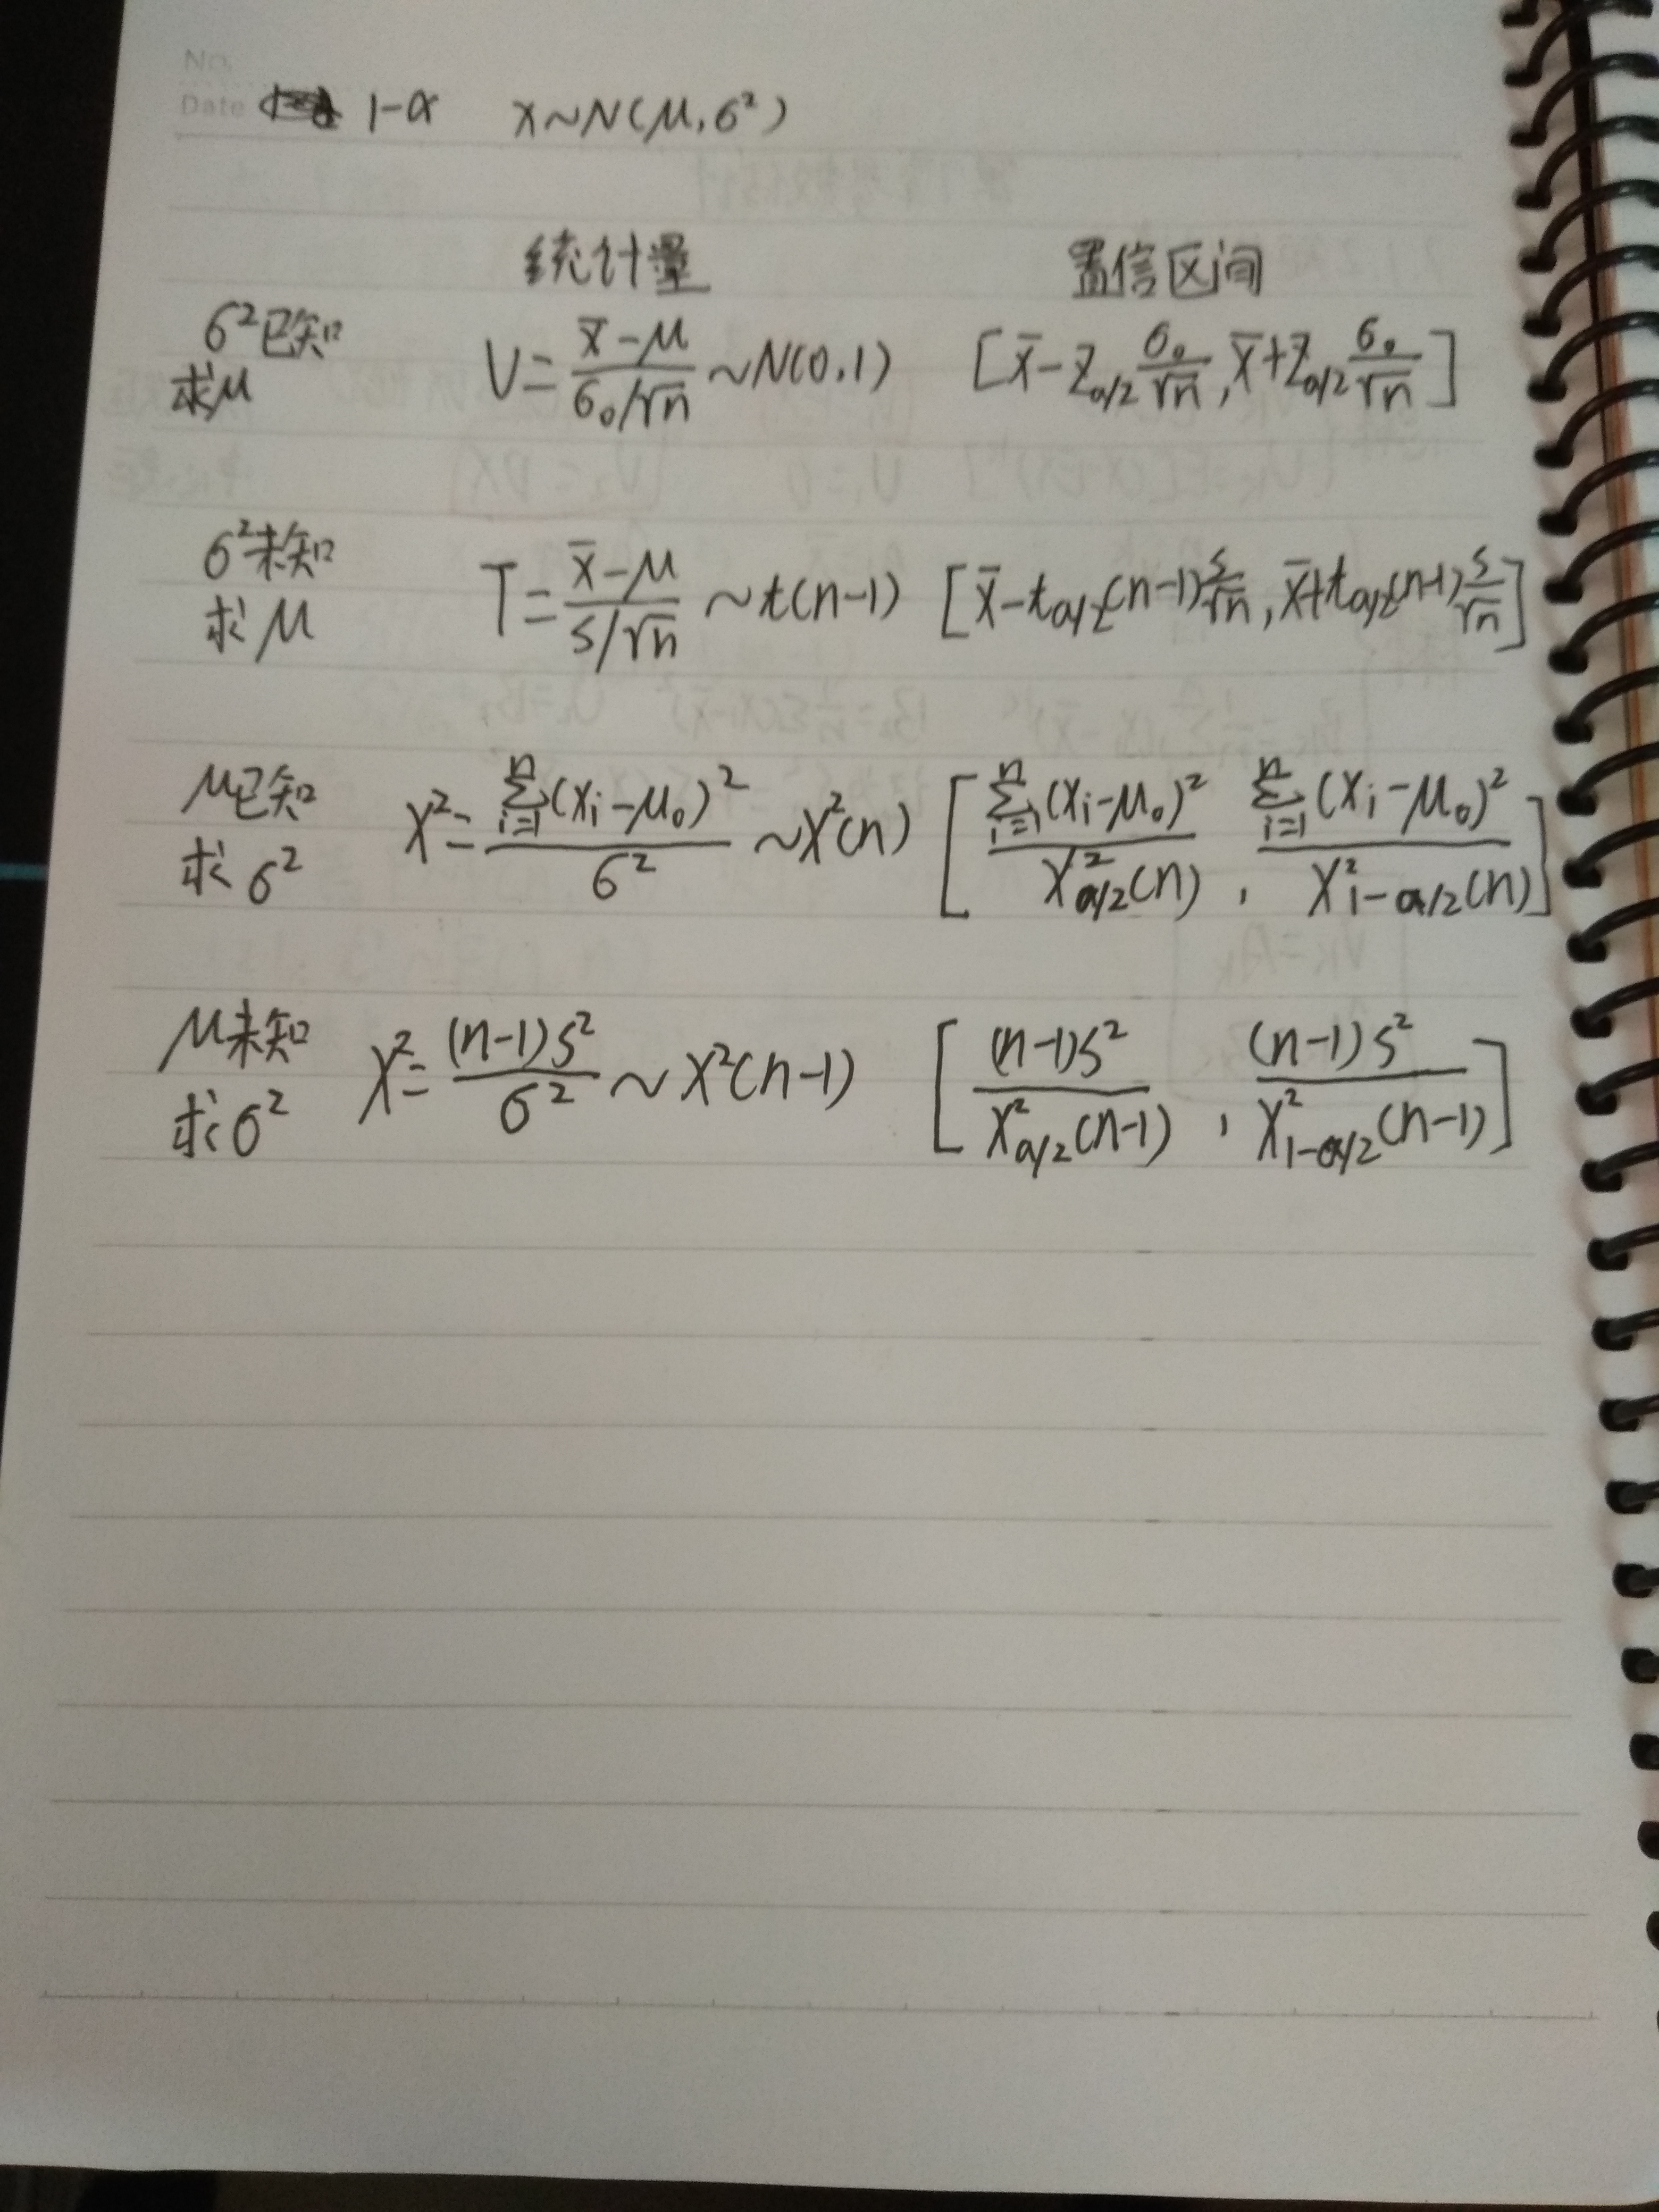 No.
Date 1-α X~N(μ,σ²)
统计量 置信区间
σ²已知 求μ U=(x̄-μ)/(σ₀/√n)~N(0,1) [x̄-Z_{α/2} σ₀/√n, x̄+Z_{α/2} σ₀/√n]
σ²未知 求μ T=(x̄-μ)/(S/√n)~t(n-1) [x̄-t_{α/2}(n-1) S/√n, x̄+t_{α/2}(n-1) S/√n]
μ已知 求σ² χ²=∑_{i=1}^{n}(Xi-μ₀)²/σ²~χ²(n) [∑_{i=1}^{n}(Xi-μ₀)²/χ²_{α/2}(n), ∑_{i=1}^{n}(Xi-μ₀)²/χ²_{1-α/2}(n)]
μ未知 求σ² χ²=(n-1)S²/σ²~χ²(n-1) [(n-1)S²/χ²_{α/2}(n-1), (n-1)S²/χ²_{1-α/2}(n-1)]